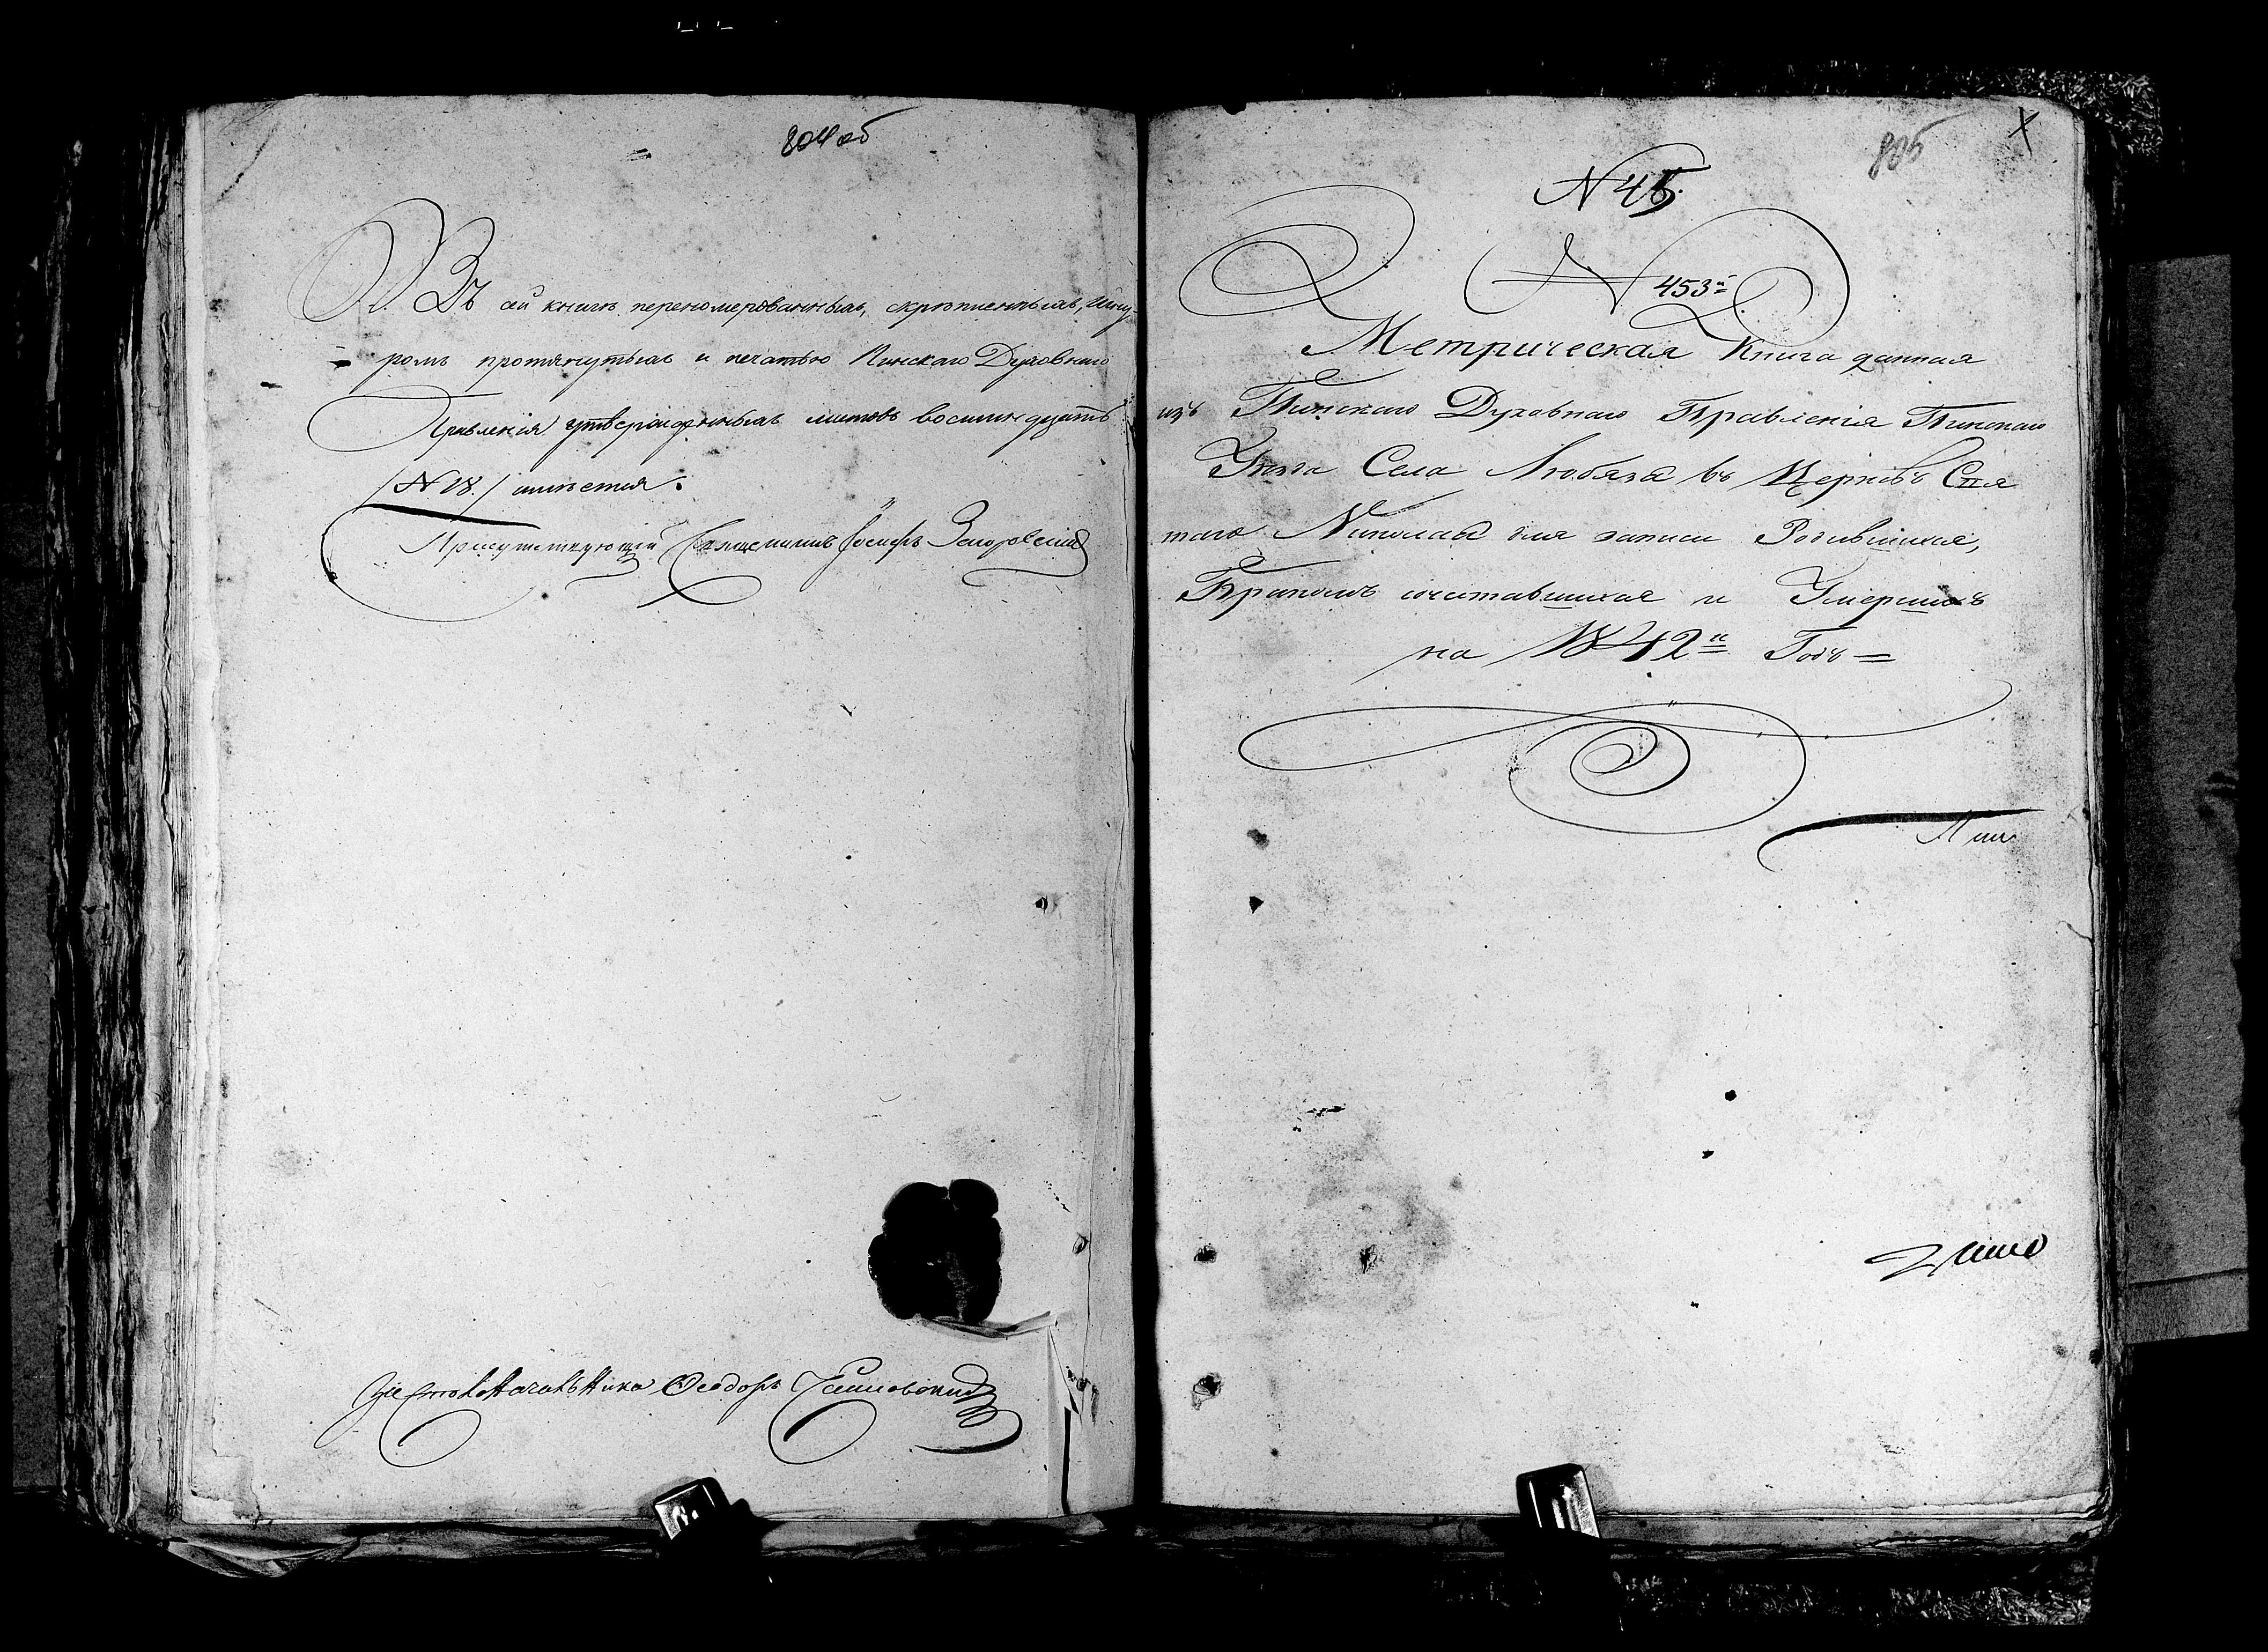 804 об
Въ сей книгѣ перепомерованныхъ, скрѣпленныхъ, шну-
ромъ протянутыхъ и печатью Пинскаго Духовнаго
Правленія утвержденныхъ листовъ восемнадцать
/N 18./ имѣется.
Присутствующій Священникъ Іосифъ
За Столоначальника Ѳеодоръ
805
N 45.
N 453й
Метрическая Книга данная
изъ Пинскаго Духовнаго Правленія Пинскаго
Уѣзда Села Любязя въ Церковь Свя
таго Николая для записи Родившихся,
Бракомъ сочетавшихся и Умершихъ
на 1842й Годъ